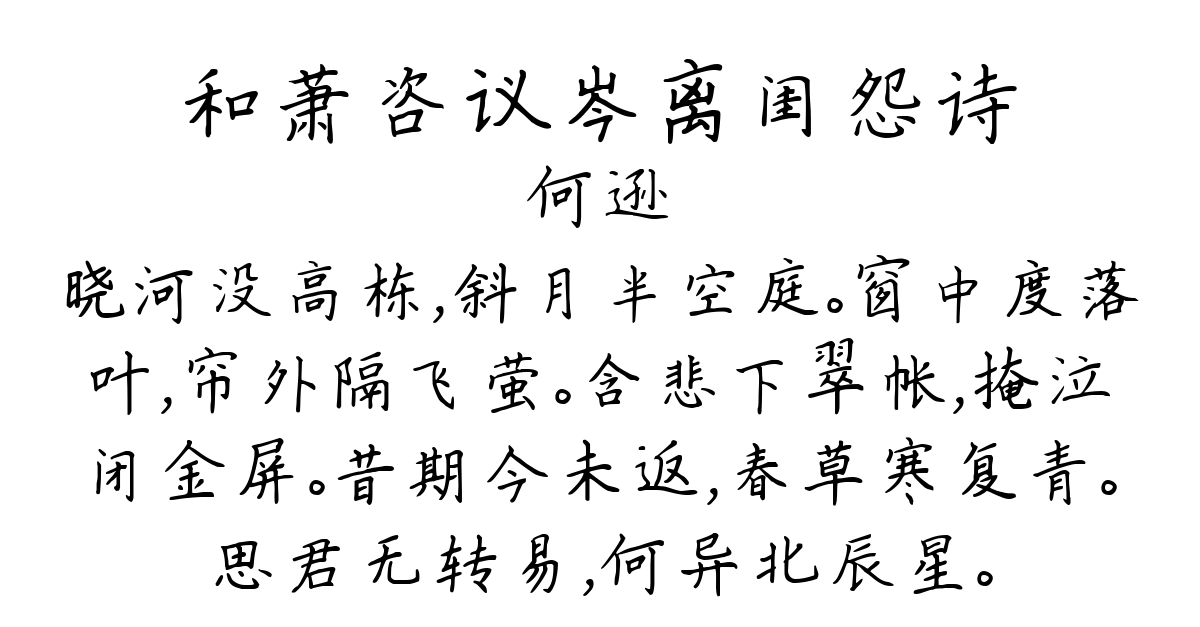 和萧咨议岑离闺怨诗
何逊
晓河没高栋,斜月半空庭。窗中度落
叶,帘外隔飞萤。含悲下翠帐,掩泣
闭金屏。昔期今未返,春草寒复青。
思君无转易,何异北辰星。